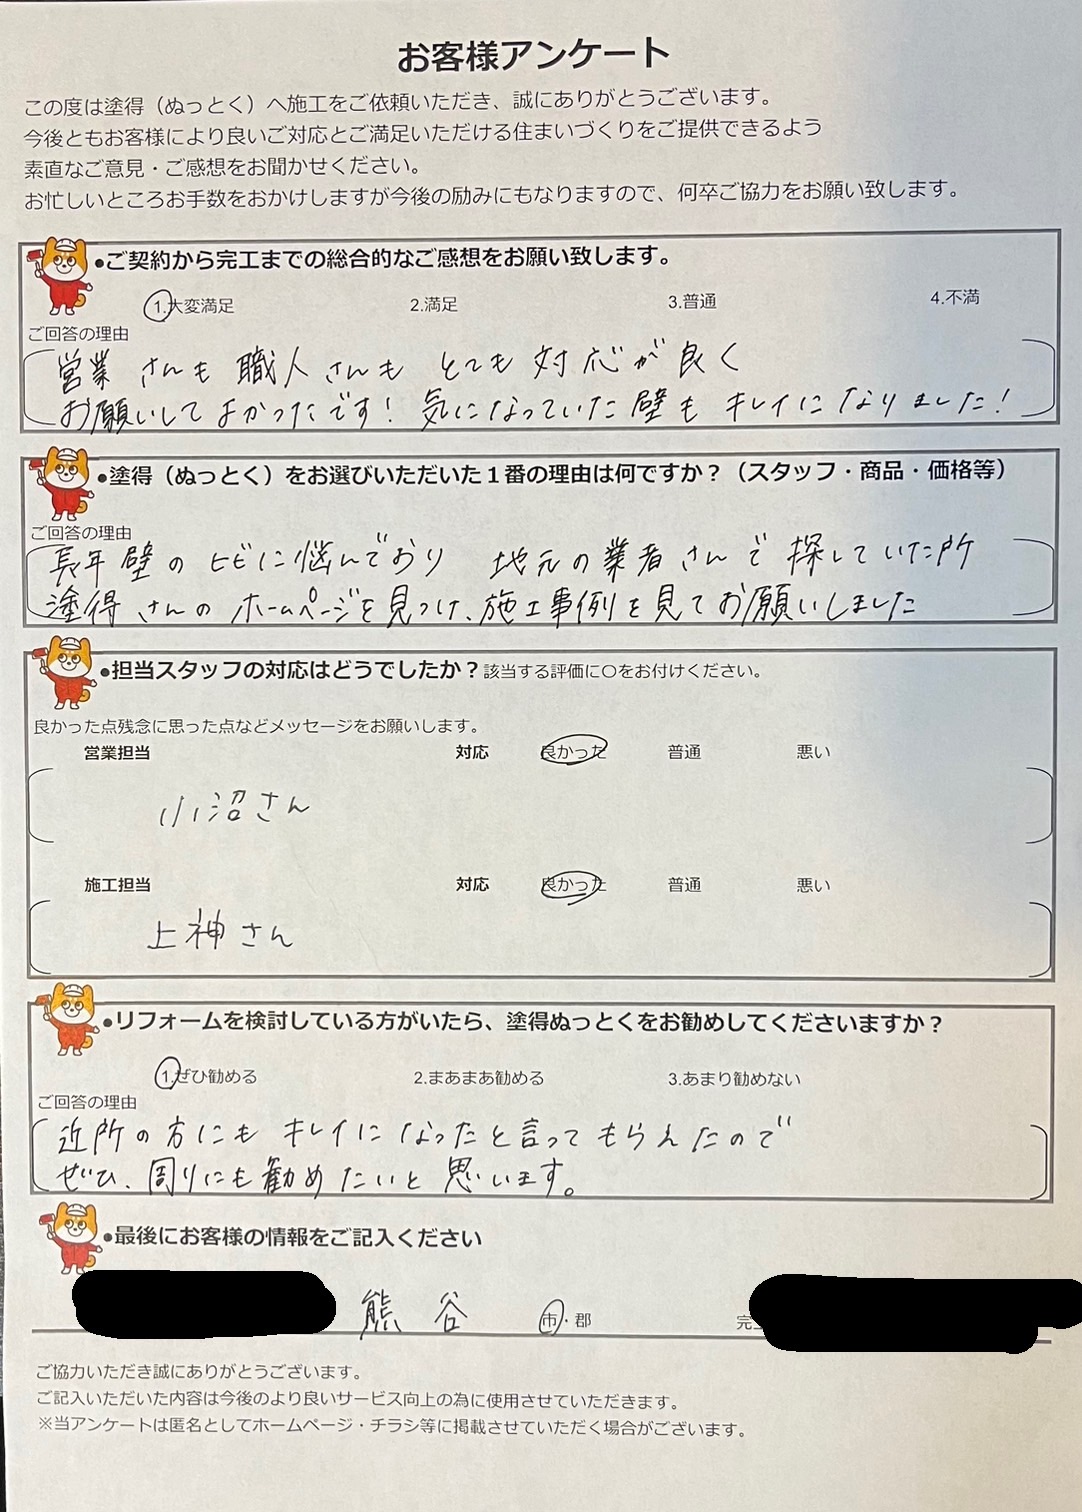 お客様アンケート
この度は塗得（ぬっとく）へ施工をご依頼いただき、誠にありがとうございます。
今後ともお客様により良いご対応とご満足いただける住まいづくりをご提供できるよう
素直なご意見・ご感想をお聞かせください。
お忙しいところお手数をおかけしますが今後の励みにもなりますので、何卒ご協力をお願い致します。
●ご契約から完工までの総合的なご感想をお願い致します。
1.大変満足 2.満足 3.普通 4.不満
ご回答の理由
営業さんも職人さんもとても対応が良く
お願いしてよかったです！気になっていた壁もキレイになりました！
●塗得（ぬっとく）をお選びいただいた１番の理由は何ですか？（スタッフ・商品・価格等）
ご回答の理由
長年壁のヒビに悩んでおり 地元の業者さんで探していた所
塗得さんのホームページを見つけ、施工事例を見てお願いしました
●担当スタッフの対応はどうでしたか？該当する評価に○をお付けください。
良かった点残念に思った点などメッセージをお願いします。
営業担当 対応 良かった 普通 悪い
小沼さん
施工担当 対応 良かった 普通 悪い
上神さん
●リフォームを検討している方がいたら、塗得ぬっとくをお勧めしてくださいますか？
1.ぜひ勧める 2.まあまあ勧める 3.あまり勧めない
ご回答の理由
近所の方にもキレイになったと言ってもらえたので
ぜひ、周りにも勧めたいと思います。
●最後にお客様の情報をご記入ください
熊谷 市・郡 完
ご協力いただき誠にありがとうございます。
ご記入いただいた内容は今後のより良いサービス向上の為に使用させていただきます。
※当アンケートは匿名としてホームページ・チラシ等に掲載させていただく場合がございます。